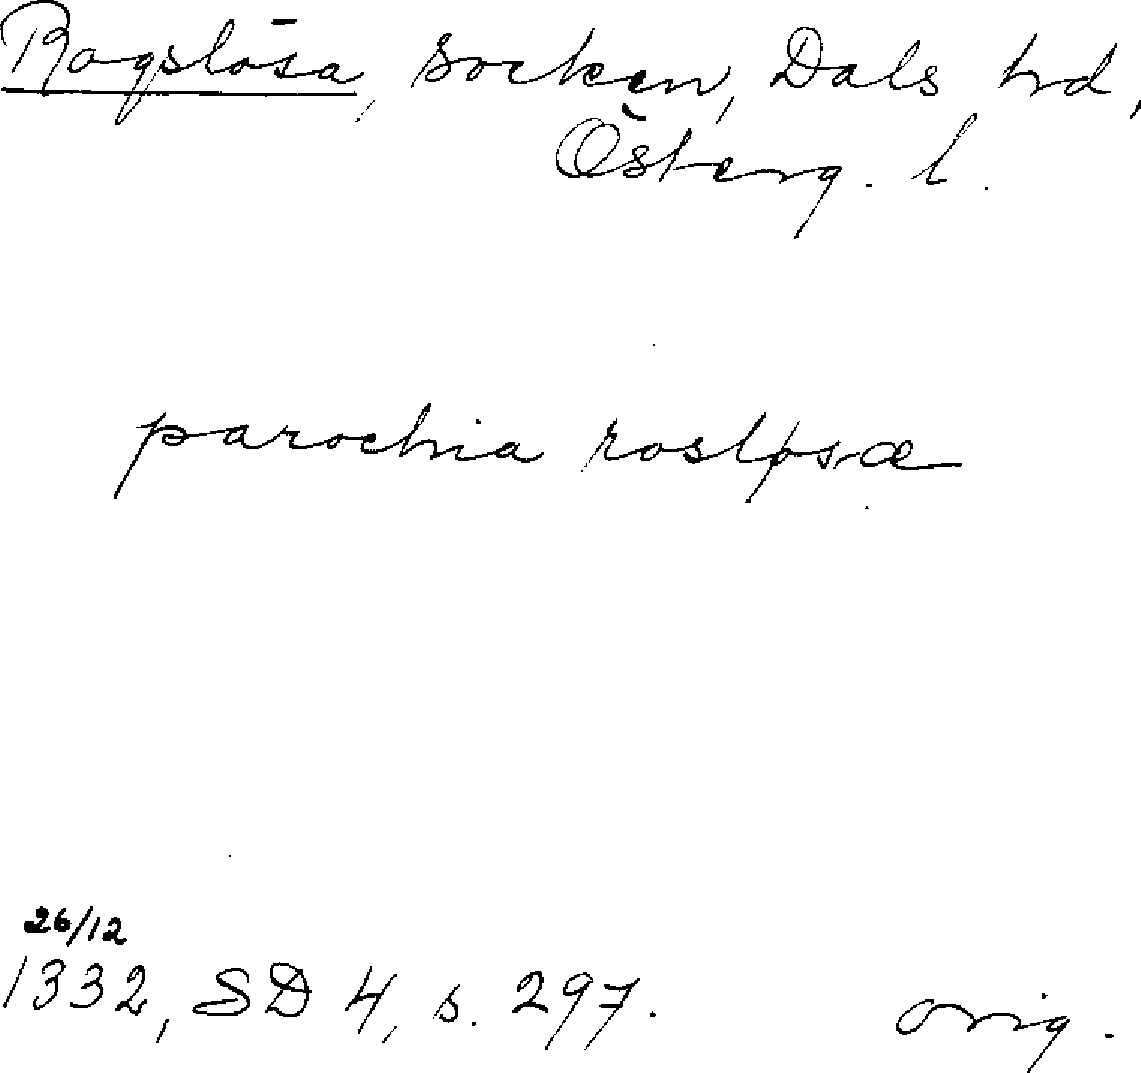 Rogslösa, socken, Dals hd,
Österg. l.
parochia rosløsæ
26/12
1332, SD 4, s. 297. orig.